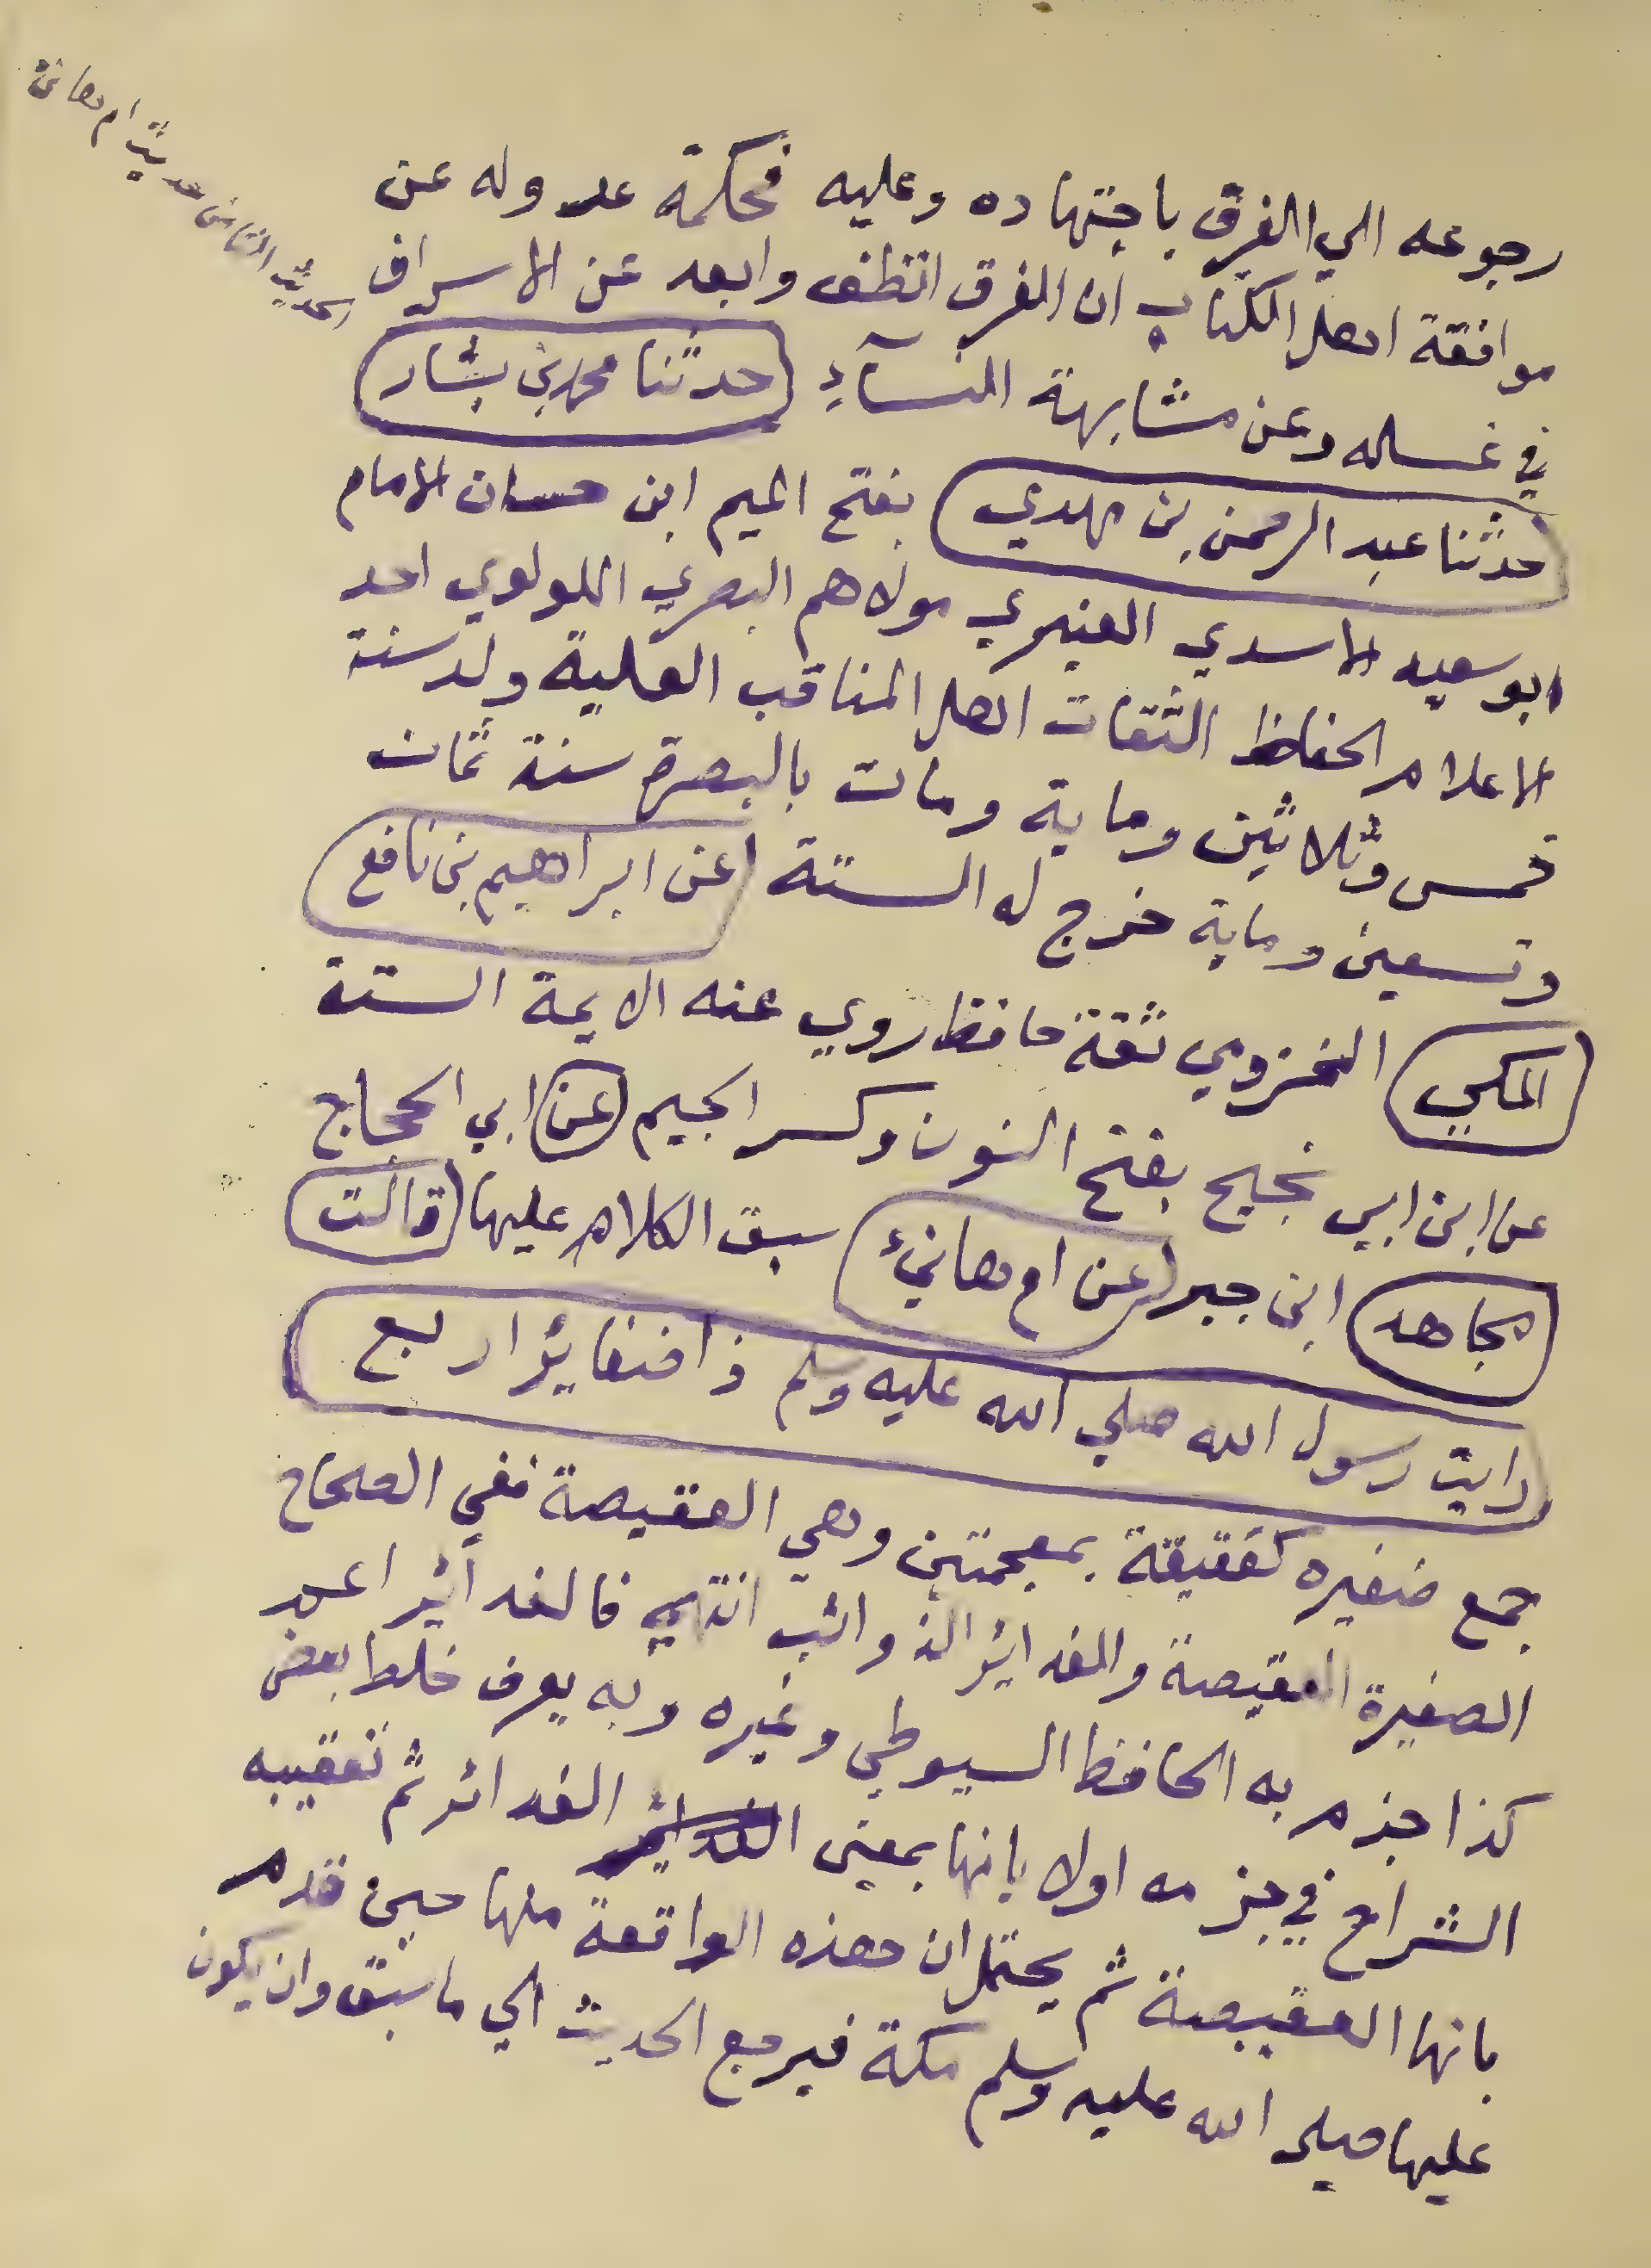 الحديث الثامن حديث ام هانئ
رجوعه الي الفرق باجتهاده وعليه فحكمة عدوله عن
موافقة اهل الكتاب ان الفرق انظف وابعد عن الاسراف
في غسله وعن مشابهة النسآء (حدثنا محمد بن بشار
حدثنا عبد الرحمن بن مهدي) بفتح الميم ابن حسان الامام
ابو سعيد الاسدي العنبري مولاهم البصري اللولوي احد
الاعلام الحفاظ الثقات اهل المناقب العلية ولد سنة
خمس وثلاثين وماية ومات بالبصرة سنة ثمان
وتسعين وماية خرج له الستة (عن ابراهيم بن نافع
المكي) المخزومي ثقة حافظ روي عنه الايمة الستة
عن ابن ابي نجيح بفتح النون وكسر الجيم (عن) ابي الحجاج
(مجاهد) ابن جبر (عن ام هانئ) سبق الكلام عليها (قالت
رايت رسول الله صلي الله عليه وسلم ذا ضفاير اربع)
جمع ضفيره كفقيقة بمعجمتين وهي العقيصة ففي الصحاح
الضفيرة العقيصة والغداير الذوائب انتهي فالغدائر اعم
كذا جزم به الحافظ السيوطي وغيره وبه يعرف خلط بعض
الشراح في جزمه اولا بانها بمعنى الغدائر ثم تعقيبه
بانها العقيصة ثم يحتمل ان هذه الواقعة منها حين قدم
عليها صلى الله عليه وسلم مكة فيرجع الحديث الي ما سبق وان يكون